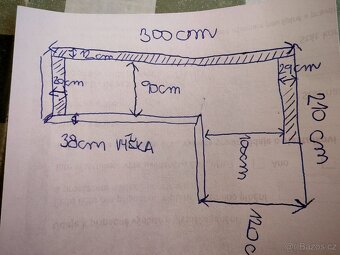 300cm
12cm
20cm
90cm
29cm
210cm
38cm VÝŠKA
100cm
120c